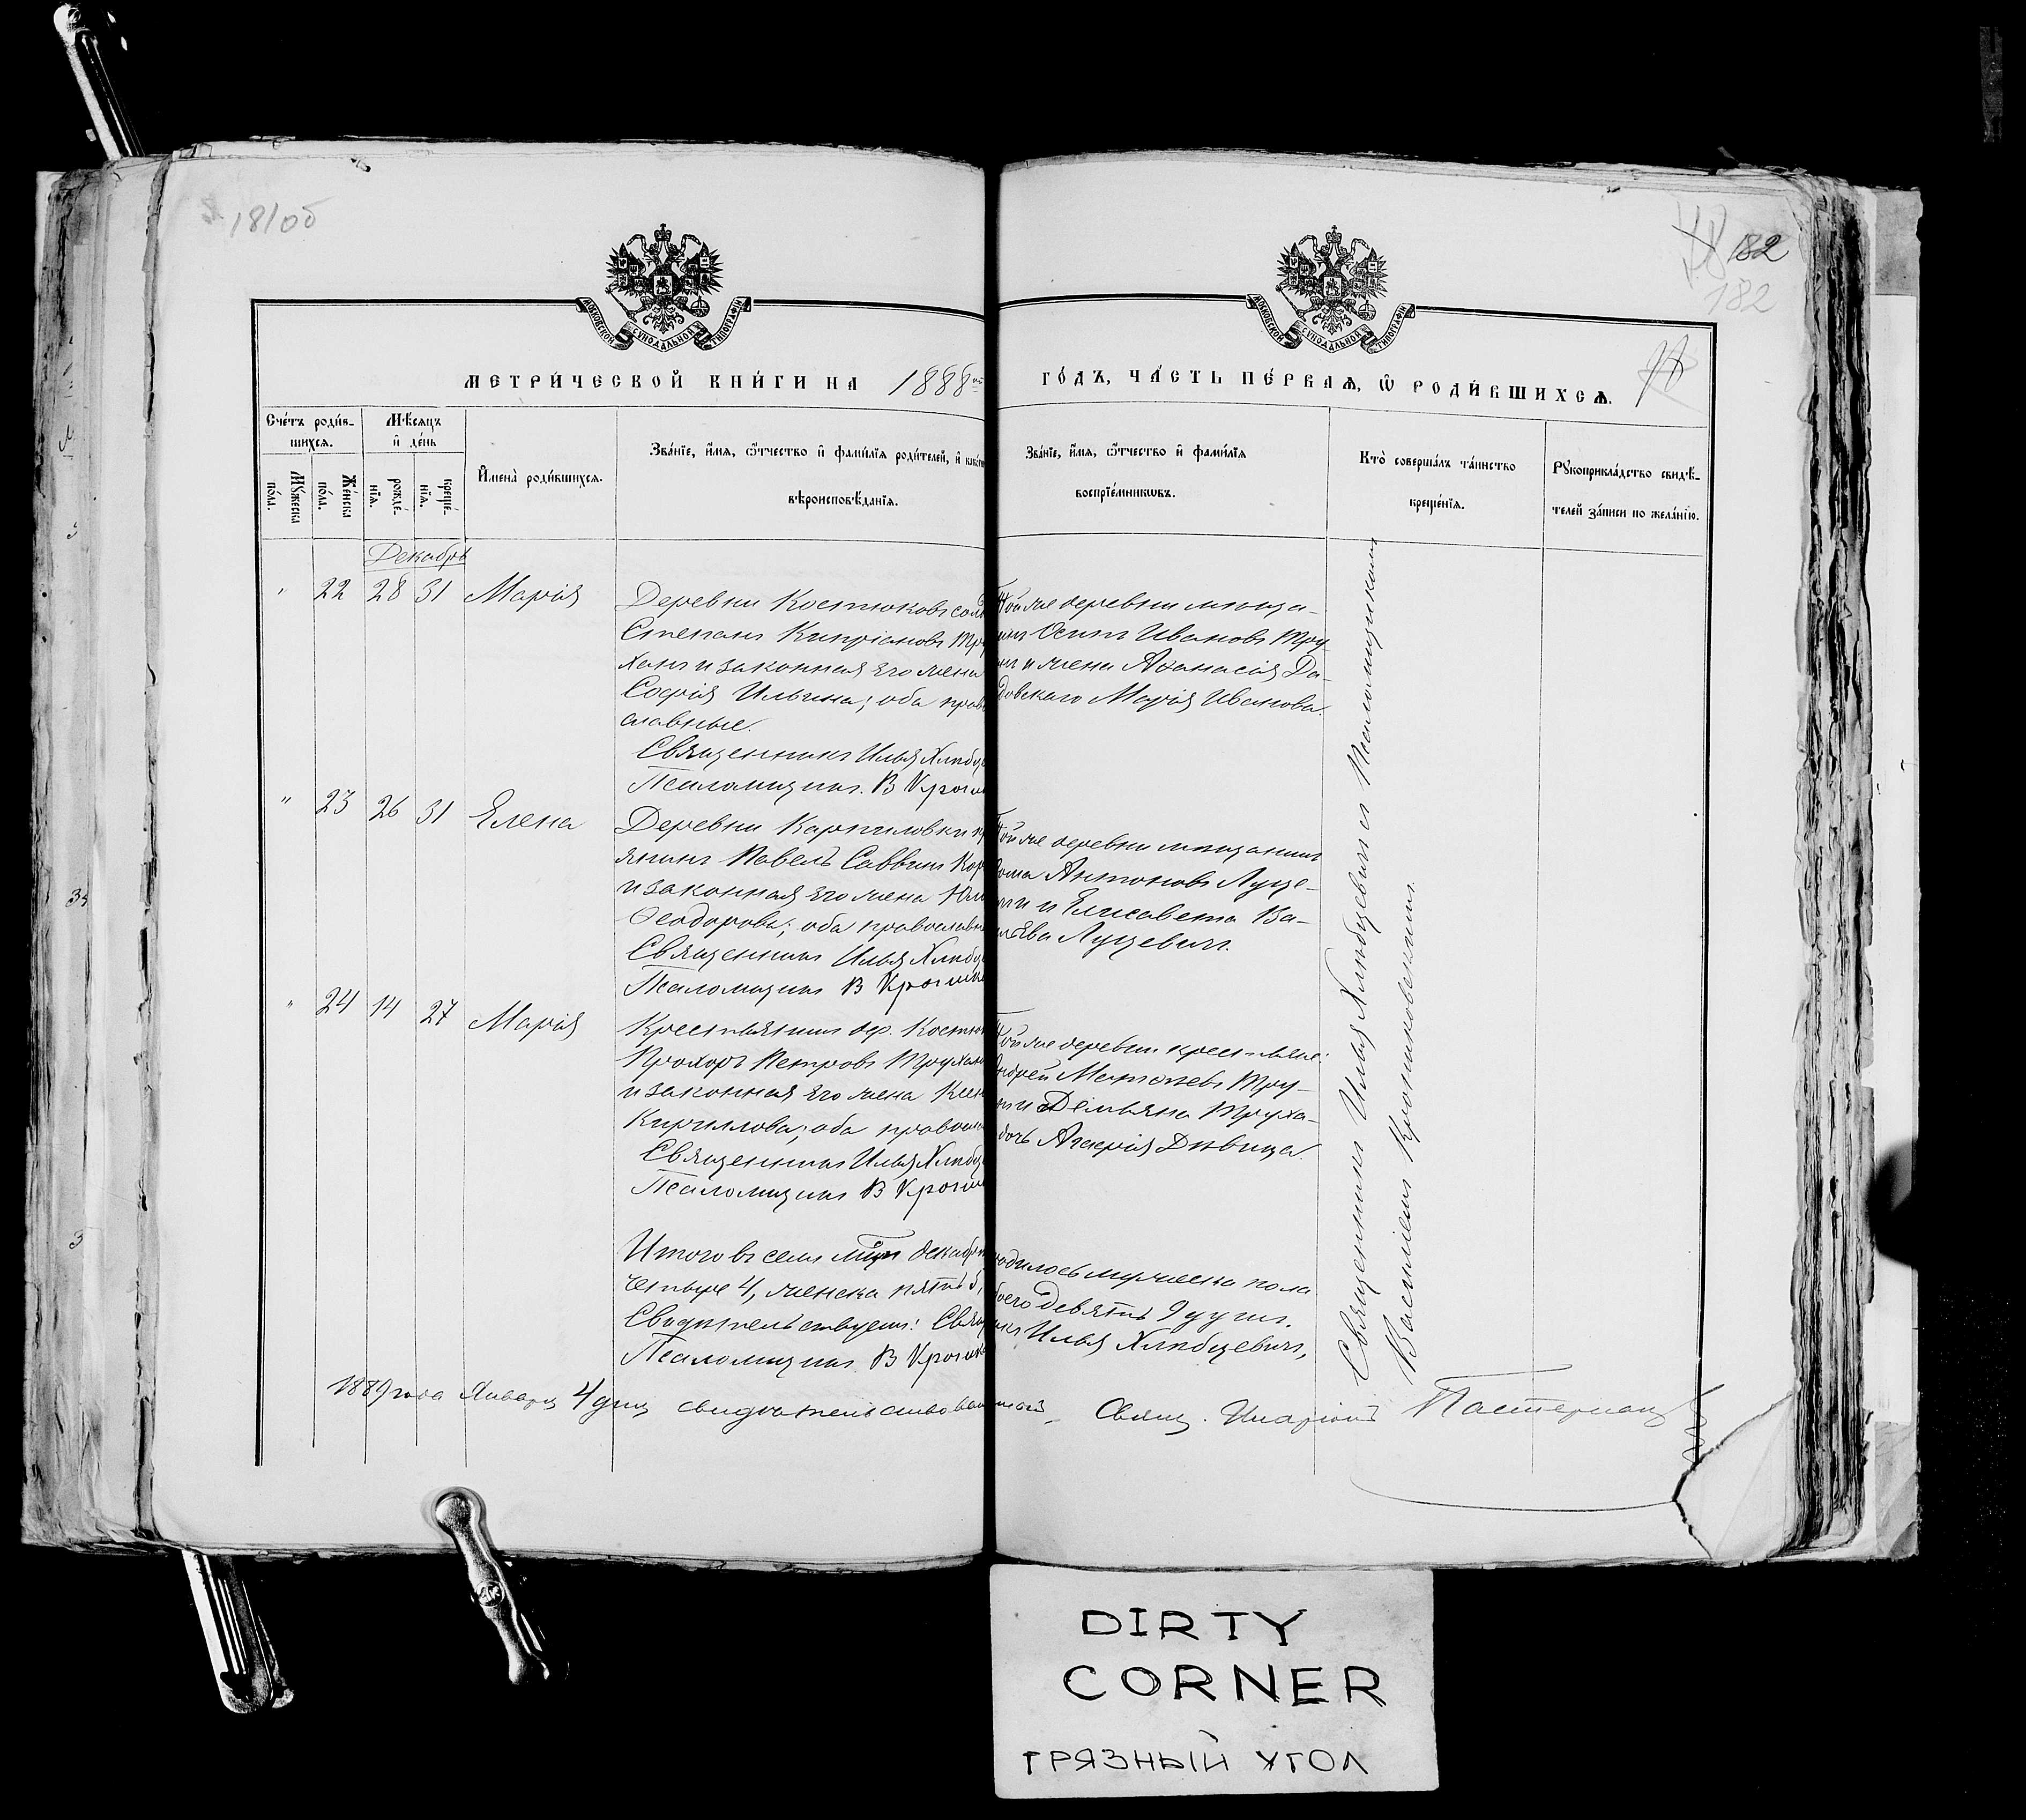 181об
182
182
МОСКОВСКОЙ СѴНОДАЛЬНОЙ ТИПОГРАФІИ
МОСКОВСКОЙ СѴНОДАЛЬНОЙ ТИПОГРАФІИ
МЕТРИ́ЧЕСКОЙ КНИ́ГИ НА 1888ой
ГО́ДЪ, ЧА́СТЬ ПЕ́РВАѦ, Ѽ РОДИ́ВШИХСѦ.
Сче́тъ роди́в-
шихся.
Му́жеска по́ла.
Же́нска по́ла.
Мѣ́сяцъ
и де́нь
рожде́-
нїя.
креще́-
нїя.
Имена̀ роди́вшихся.
Зва́нїе, и́мя, ѻ́тчество и фами́лїя роди́телей, и
вѣроисповѣ́данїя.
Зва́нїе, и́мя, ѻ́тчество и фами́лїя
воспрїе́мниковъ.
Кто̀ соверша́лъ та́инство
креще́нїя.
Рукоприкла́дство свидѣ́-
телей за́писи по жела́нїю.
Декабрь
" 22 28 31 Марія
Деревни Костюковъ
Степанъ Кипріановъ Тру
ханъ и законная его жена
Софія Ильина; оба право
славные.
Священникъ Илья Хлѣбце
Псаломщикъ. В Крот
Той же деревни мѣща-
нинъ Осипъ Ивановъ Тру
и жена Аѳанасія Да-
довскаго Марія Иванова.
" 23 26 31 Елена
Деревни Карпиловки кр
янинъ Павелъ Саввинъ Кор
и законная его жена Юл
Ѳеодорова; оба православн
Священникъ Илья Хлѣбц
Псаломщикъ В Крот
Той же деревни мѣщанинъ
Ѳома Антоновъ Луце-
и Елисавета Ва-
Луцевичъ.
" 24 14 27 Марія
Крестьянинъ др. Костюк
Прохоръ Петровъ Трухан
и законная его жена Ксен
Кириллова; оба правосл
Священникъ Илья Хлѣбц
Псаломщикъ В Крот
Той же деревни крестьяне:
Андрей Тру-
и Демьяна Труха-
дочь дѣвица.
Итого въ семъ мцѣ декабрѣ
родилось мужеска пола
четыре 4, женска пять 5,
обоего девять 9 душъ.
Свидѣтельствуемъ: Свящ
Илья Хлѣбцевичъ,
Псаломщикъ В Крот
Священникъ Илья Хлѣбцевичъ съ Псаломщикомъ
Василіемъ
1889 года Января 4 дня свидѣтельствовалъ
Свящ. Иларіонъ Пастернац
DIRTY
CORNER
ГРЯЗНЫЙ УГОЛ